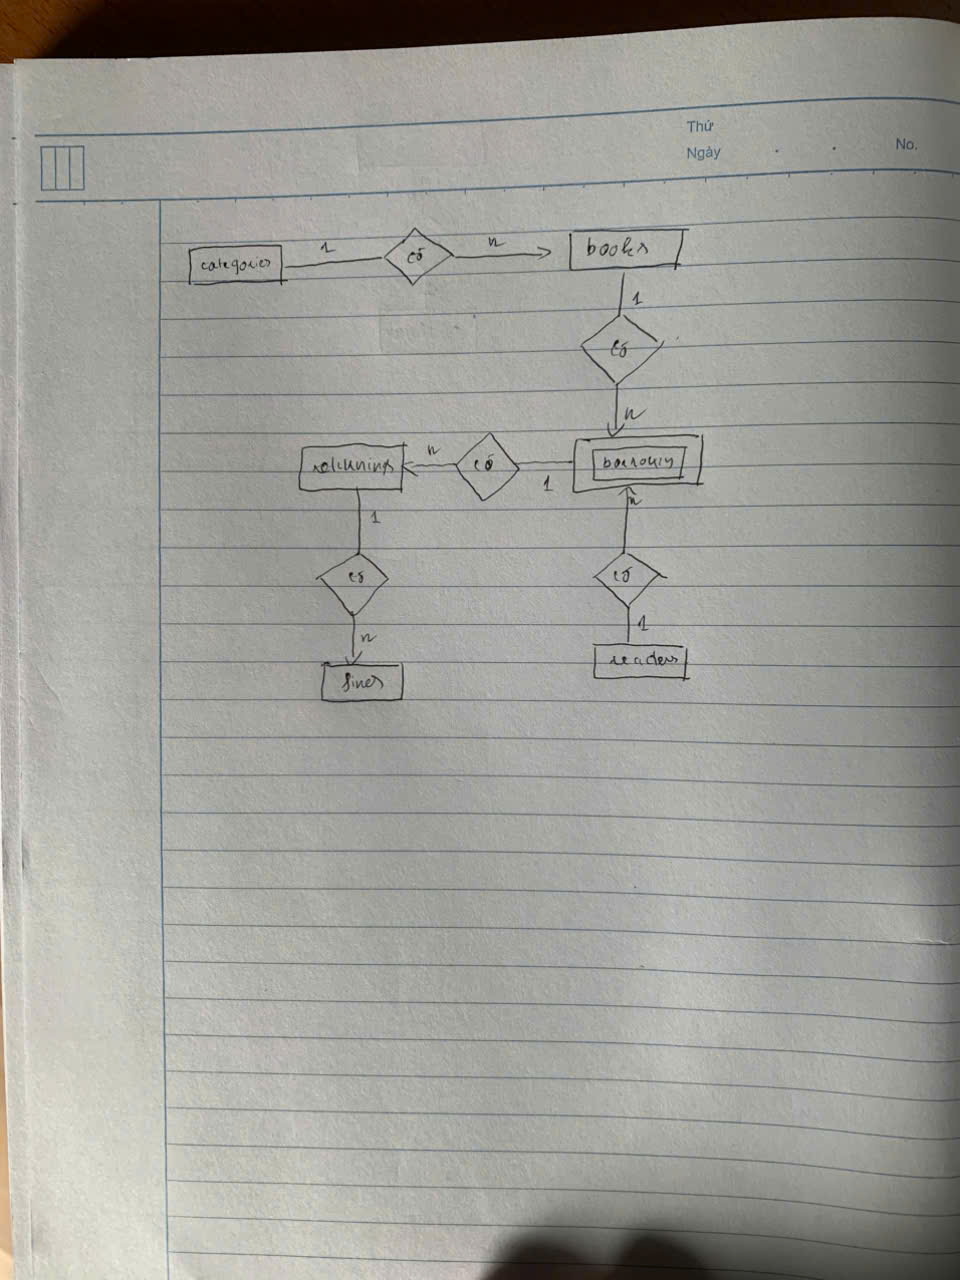 Thứ
Ngày
No.
categories 1 có n books
1
có
n
returnings n có 1 borrowing
1 n
có có
n 1
fines readers